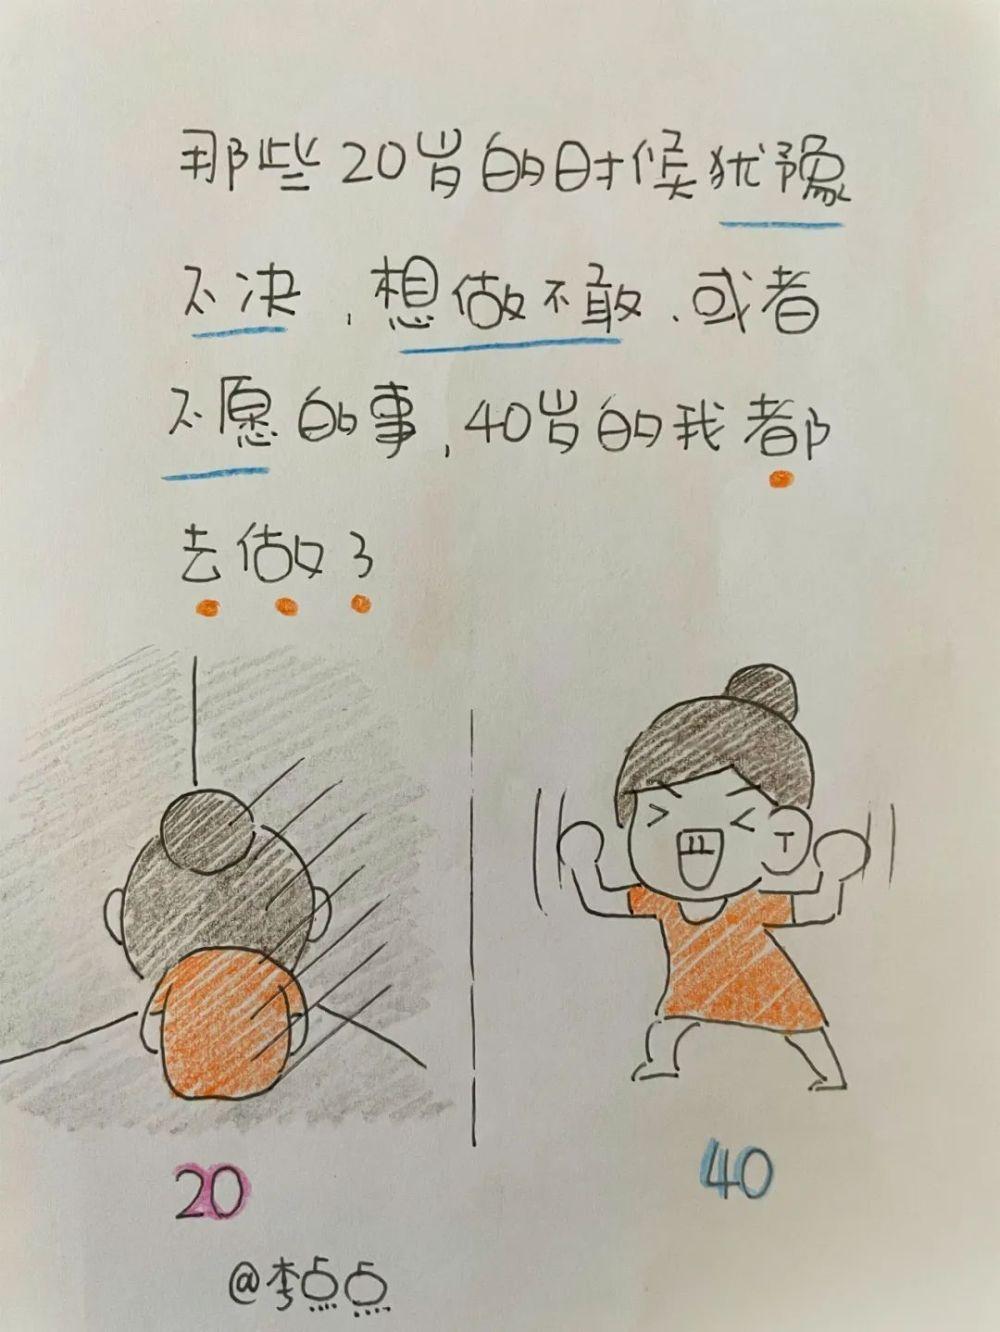 那些20岁的时候犹豫
不决,想做不敢、或者
不愿的事,40岁的我都
去做了
20
40
@李点点